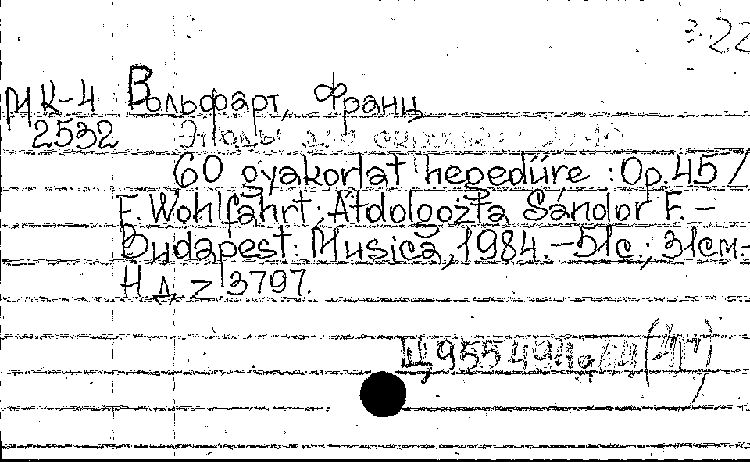 3.22
МК-4 Вольфарт, Франц
2532 Этюды для скрипки
60 gyakorlat hegedüre : Op.45 /
F. Wohlfahrt; Átdolgozta Sándor F. –
Budapest: Musica, 1984. – 51с.; 31см. –
Н.д. Z 13797.
Ц 955